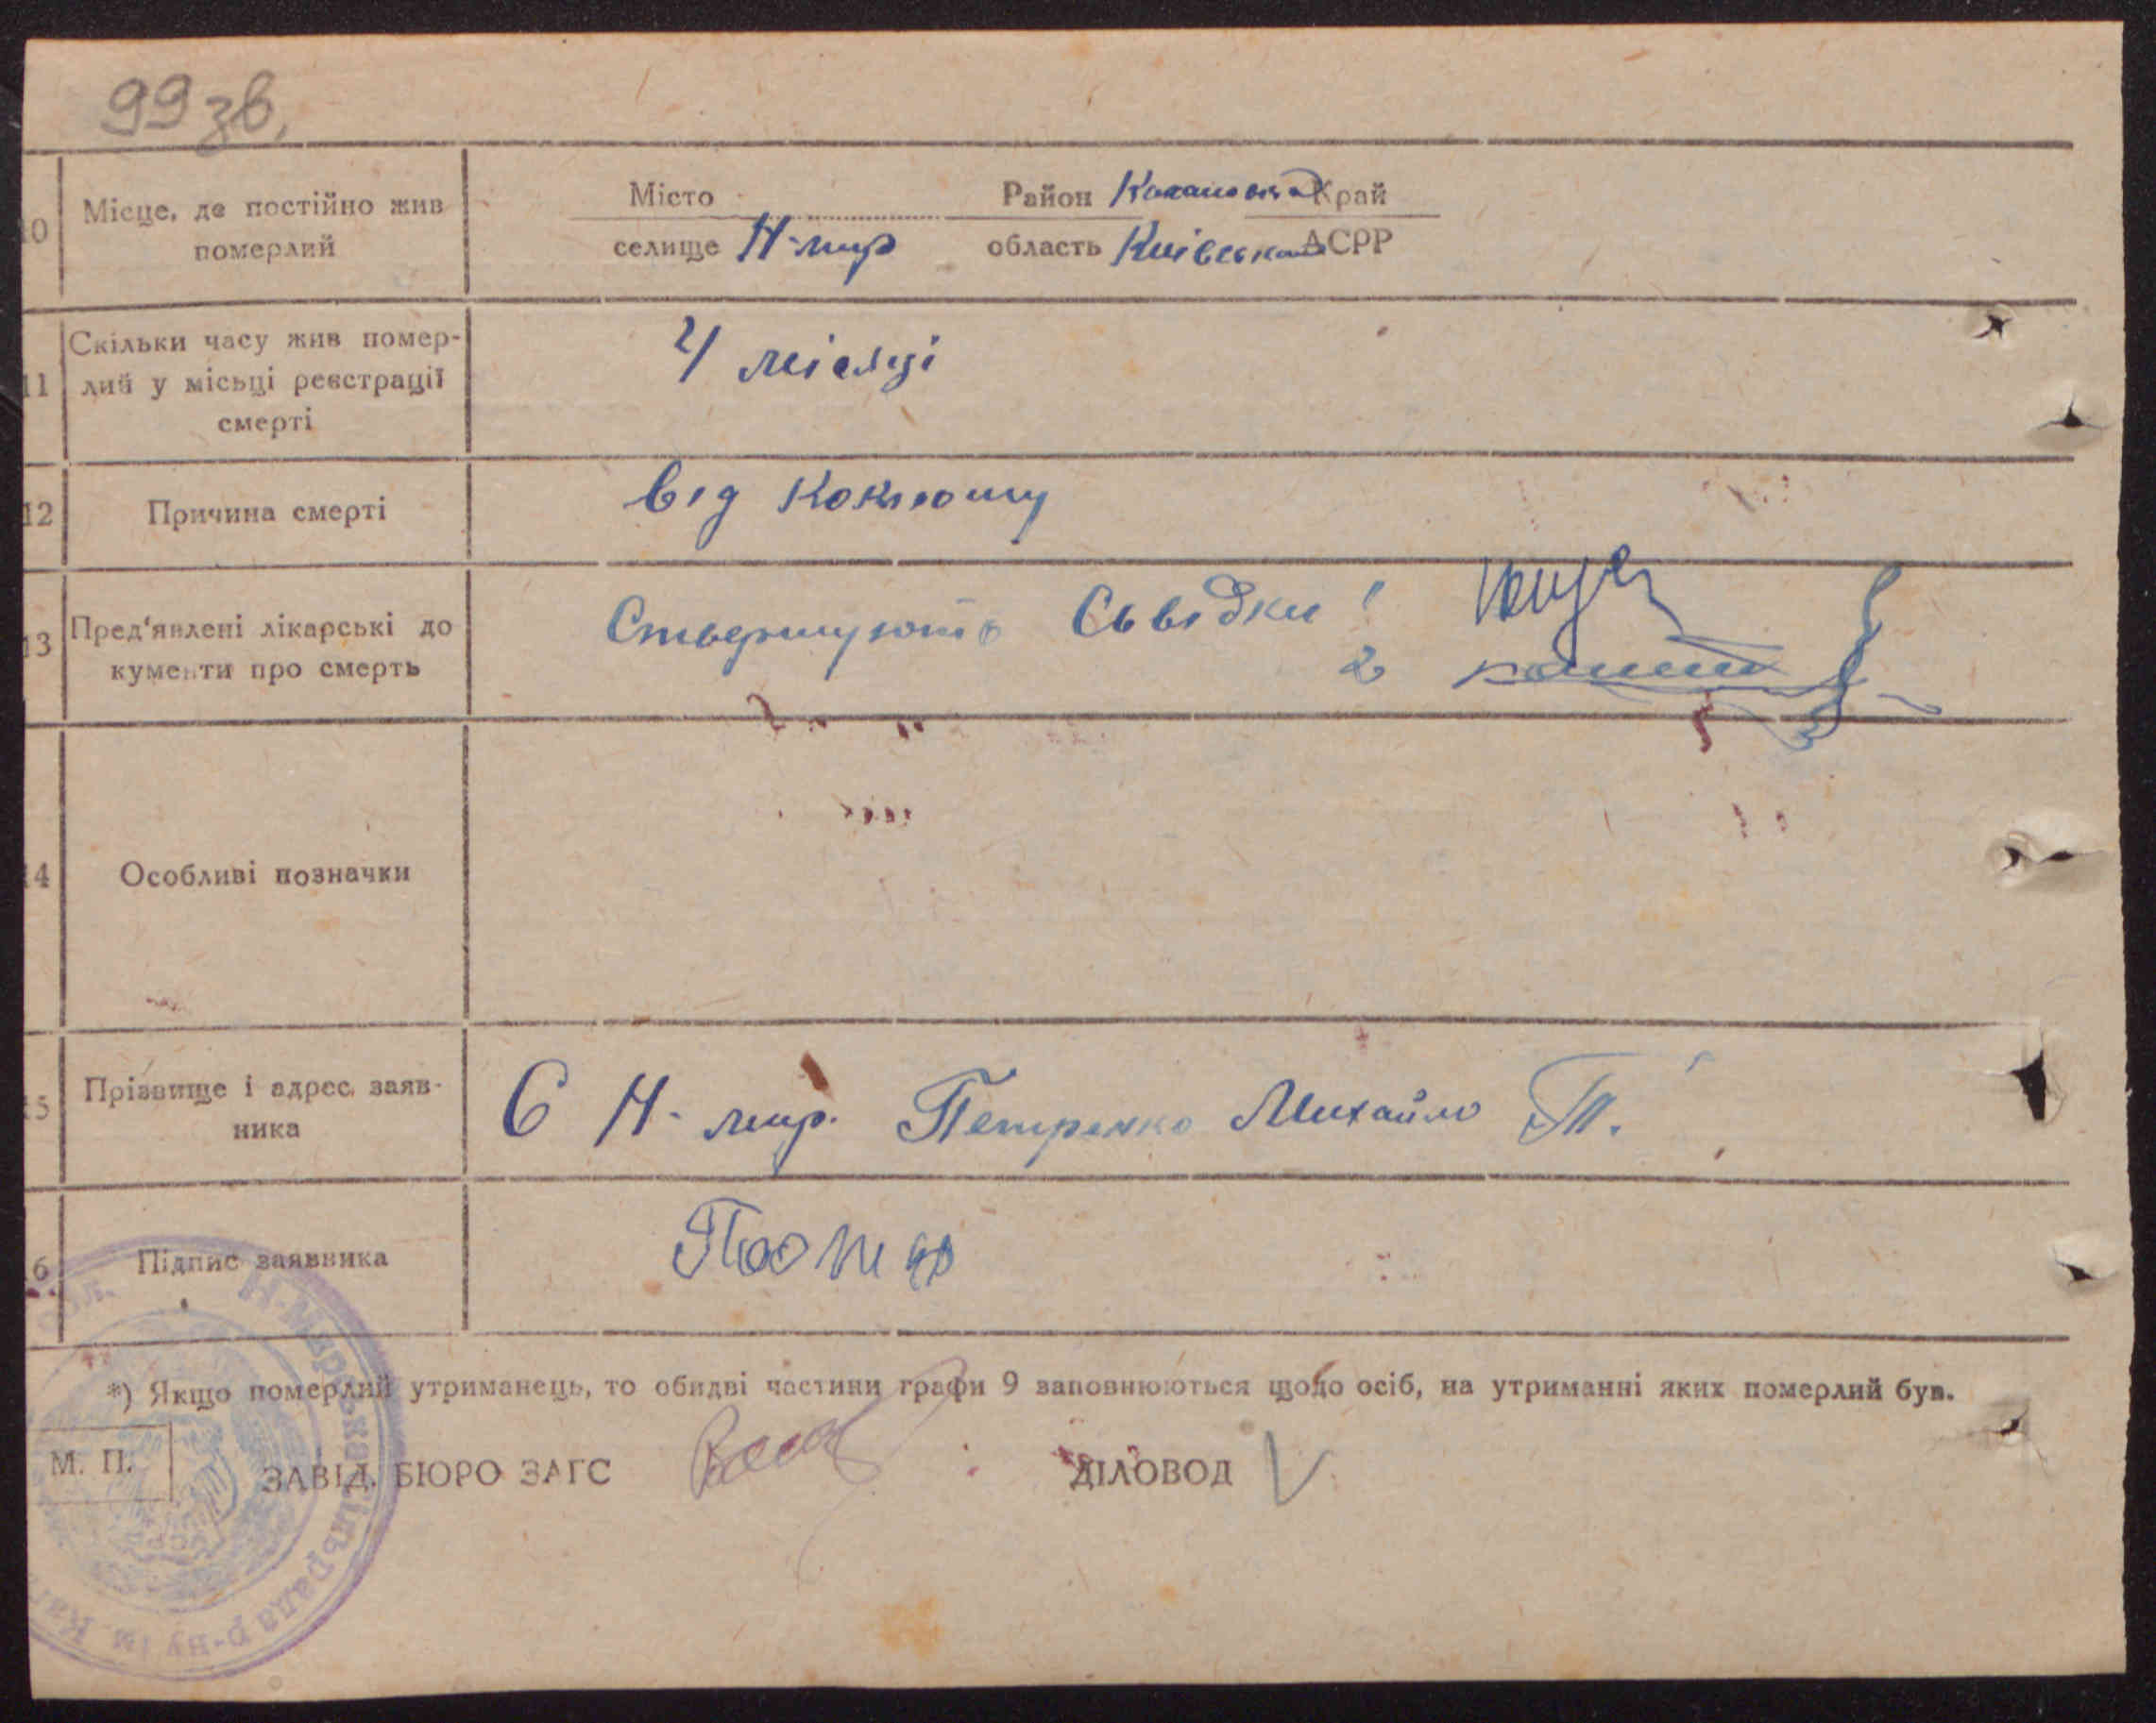 99 зв.
10 Місце, де постійно жив померлий
Місто Район Край
селище Н-мир область Київська АСРР
11 Скільки часу жив помер-
лий у місьці реєстрації
смерті
4 місяці
12 Причина смерті
від Коклюшу
13 Пред'явлені лікарські до
кументи про смерть
Ствержують Свідки !
2
14 Особливі позначки
15 Прізвище і адрес заяв-
ника
С Н-мир. Петренко Михайло П.
16 Підпис заявника
*) Якщо померлий утриманець, то обидві частини графи 9 заповнюються щодо осіб, на утриманні яких померлий був.
М. П.
ЗАВІД. БЮРО ЗАГС ДІЛОВОД
Н-Мирська сільрада р-ну ім Каг